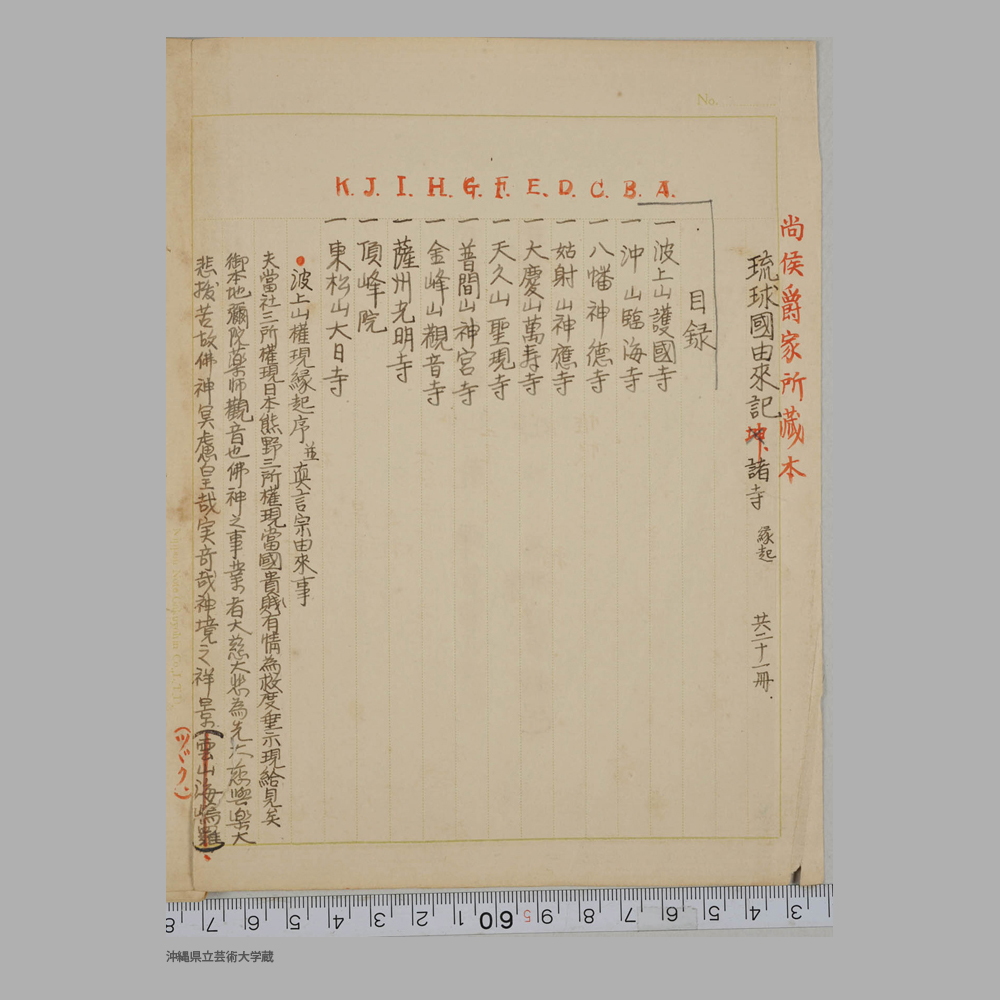 No.
尚侯爵家所蔵本
琉球國由來記 坤下 諸寺 緣起 共二十一冊.
目録
A. 一 波上山護國寺
B. 一 沖山臨海寺
C. 一 八幡神德寺
D. 一 姑射山神應寺
E. 一 大慶山萬寿寺
F. 一 天久山聖現寺
G. 一 普間山神宮寺
H. 一 金峰山觀音寺
I. 一 薩州光明寺
J. 一 頂峰院
K. 一 東松山大日寺
波上山權現緣起序 並 真言宗由來事
夫當社三所權現日本熊野三所權現當國貴賎有情為救度垂示現給見矣
御本地彌陀薬師觀音也佛神之事業者大慈大悲為先大慈與楽大
悲拔苦故佛神冥慮皇哉実奇哉神境之祥景(雲山海嶋難)
(ツヾク)
8 7 6 5 4 3 2 1 60 5 9 8 7 6 5 4 3
沖縄県立芸術大学蔵